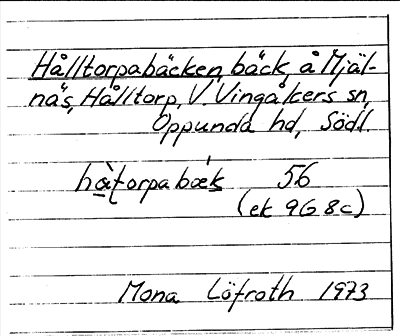 Hålltorpabäcken, bäck, å Mjäl-
näs, Hålltorp, V. Vingåkers sn,
Oppunda hd, Södl.
hàʈorpabæ̀k 56
(ek 9G8c)
Mona Löfroth 1973